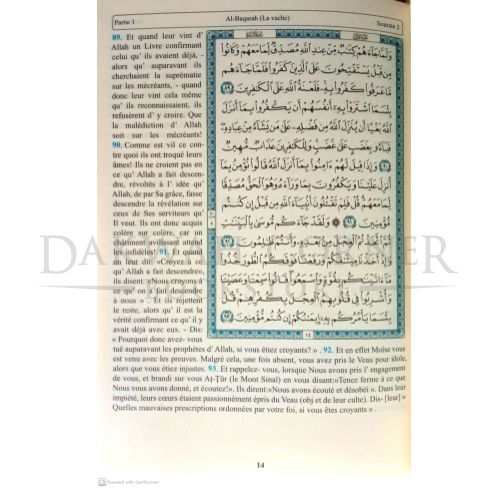 Partie 1
Al-Baqarah (La vache)
Sourate 2
89. Et quand leur vint d'
Allah un Livre confirmant
celui qu' ils avaient déjà, -
alors qu' auparavant ils
cherchaient la suprématie
sur les mécréants, - quand
donc leur vint cela même
qu' ils reconnaissaient, ils
refusèrent d' y croire. Que
la malédiction d' Allah
soit sur les mécréants!
90. Comme est vil ce con-
tre quoi ils ont troqué leurs
âmes! Ils ne croient pas en
ce qu' Allah a fait descen-
dre, révoltés à l' idée qu'
Allah, de par Sa grâce, fasse
descendre la révélation sur
ceux de Ses serviteurs qu'
Il veut. Ils ont donc acquis
colère sur colère, car un
châtiment avilissant attend
les infidèles! 91. Et quand
on leur dit: «Croyez à ce
qu' Allah a fait descendre»,
ils disent: «Nous croyons à
ce qu' on a fait descendre
à nous» . Et ils rejettent
le reste, alors qu' il est la
vérité confirmant ce qu' il y
avait déjà avec eux. - Dis:
« Pourquoi donc avez- vous
tué auparavant les prophètes d' Allah, si vous étiez croyants? » . 92. Et en effet Moïse vous
est venu avec les preuves. Malgré cela, une fois absent, vous avez pris le Veau pour idole,
alors que vous étiez injustes. 93. Et rappelez- vous, lorsque Nous avons pris l' engagement
de vous, et brandi sur vous Aṭ-Ṭūr (le Mont Sinaï) en vous disant:«Tenez ferme à ce que
Nous vous avons donné, et écoutez!». Ils dirent:«Nous avons écouté et désobéi» . Dans leur
impiété, leurs cœurs étaient passionnément épris du Veau (obj et de leur culte). Dis- [leur] «
Quelles mauvaises prescriptions ordonnées par votre foi, si vous êtes croyants» .
وَلَمَّا جَاءَهُمْ كِتَابٌ مِّنْ عِندِ اللَّهِ مُصَدِّقٌ لِّمَا مَعَهُمْ وَكَانُوا
مِن قَبْلُ يَسْتَفْتِحُونَ عَلَى الَّذِينَ كَفَرُوا فَلَمَّا جَاءَهُم
مَّا عَرَفُوا كَفَرُوا بِهِ فَلَعْنَةُ اللَّهِ عَلَى الْكَافِرِينَ ٨٩
بِئْسَمَا اشْتَرَوْا بِهِ أَنفُسَهُمْ أَن يَكْفُرُوا بِمَا أَنزَلَ
اللَّهُ بَغْيًا أَن يُنَزِّلَ اللَّهُ مِن فَضْلِهِ عَلَىٰ مَن يَشَاءُ مِنْ عِبَادِهِ
فَبَاءُو بِغَضَبٍ عَلَىٰ غَضَبٍ وَلِلْكَافِرِينَ عَذَابٌ مُّهِينٌ
٩٠ وَإِذَا قِيلَ لَهُمْ ءَامِنُوا بِمَا أَنزَلَ اللَّهُ قَالُوا نُؤْمِنُ بِمَا
أُنزِلَ عَلَيْنَا وَيَكْفُرُونَ بِمَا وَرَاءَهُ وَهُوَ الْحَقُّ مُصَدِّقًا
لِّمَا مَعَهُمْ قُلْ فَلِمَ تَقْتُلُونَ أَنبِيَاءَ اللَّهِ مِن قَبْلُ إِن كُنتُم
مُّؤْمِنِينَ ٩١ وَلَقَدْ جَاءَكُم مُّوسَىٰ بِالْبَيِّنَاتِ
ثُمَّ اتَّخَذْتُمُ الْعِجْلَ مِن بَعْدِهِ وَأَنتُمْ ظَالِمُونَ ٩٢
وَإِذْ أَخَذْنَا مِيثَاقَكُمْ وَرَفَعْنَا فَوْقَكُمُ الطُّورَ خُذُوا
مَا ءَاتَيْنَاكُم بِقُوَّةٍ وَاسْمَعُوا قَالُوا سَمِعْنَا وَعَصَيْنَا
وَأُشْرِبُوا فِي قُلُوبِهِمُ الْعِجْلَ بِكُفْرِهِمْ قُلْ
بِئْسَمَا يَأْمُرُكُم بِهِ إِيمَانُكُمْ إِن كُنتُم مُّؤْمِنِينَ ٩٣
١٤
14
Scanned with CamScanner